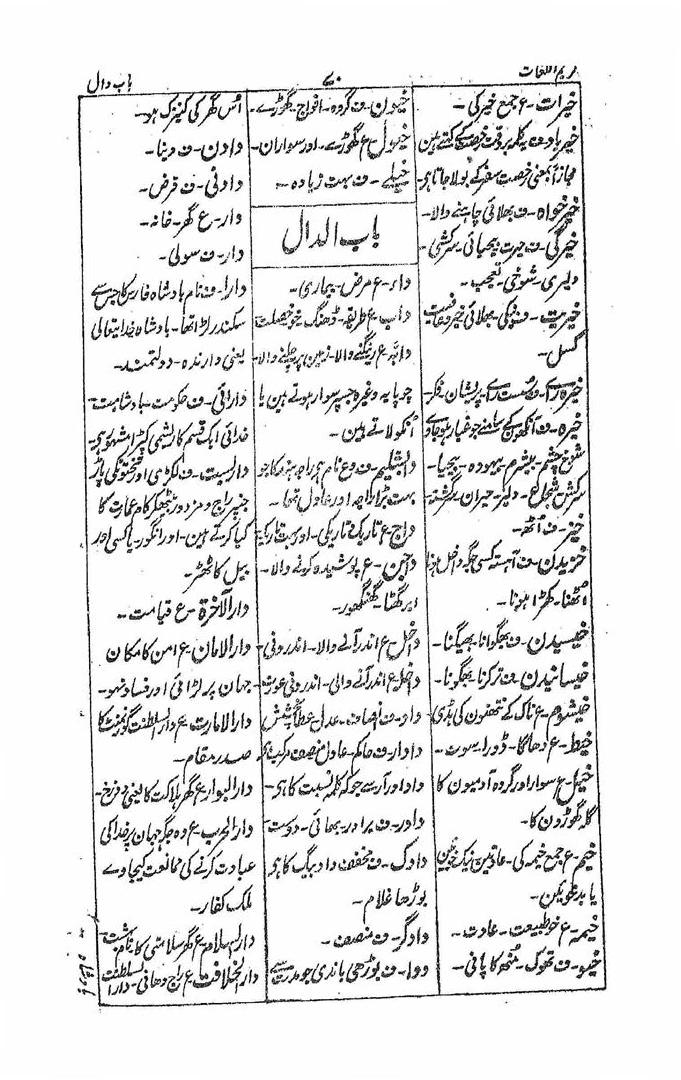 کریم اللغات
۷۰
باب دال
خیرات۔ ع جمع خیر کی۔
خیرباد۔ ف یہ کلمہ بروقت رخصت کے کہتے ہین
مجازاً بمعنی رخصت سفر کے بولا جاتا ہی
خیرخواہ۔ ف بھلائی چاہنے والا۔
خیرگی۔ ف حیرت۔ بیحیائی۔ سرکشی۔
دلیری۔ شوخی۔ تعجب۔
خیریت۔ ف نیکی۔ بھلائی خیر و عافیت
کسل۔
خیرہ رائے۔ ف سست رائے۔ پریشان فکر۔
خیرہ۔ ف آنکھون کے سامنے جو غبار ہو جاوے
شوخ چشم۔ بیشرم۔ بیہودہ۔ بیحیا۔
سرکش شجاع۔ دلیر۔ حیران سرگشتہ
خیز۔ ف اٹھ۔
خزیدن۔ ف آہستہ کسی جگہ داخل ہونا
اٹھنا۔ کھڑا ہونا۔
خیسیدن۔ ف بھگوانا۔ بھیگنا۔
خیسانیدن۔ ف تر کرنا۔ بھگونا۔
خیشوم۔ ع ناک کے نتھنون کی ہڈی
خیط۔ ع دھاگا۔ ڈورا۔ سوت۔
خیل۔ ع سوار اور گروہ آدمیون کا
گلہ گھوڑون کا۔
خیم۔ ع جمع خیمہ کی۔ عادتین نیک خوئین
یا بد خوئین۔
خیمہ۔ ع خو طبیعت۔ عادت۔
خیو۔ ف تھوک۔ منھ کا پانی۔
خیون۔ ف گروہ۔ افواج۔ گھوڑے۔
خیول۔ ع گھوڑے۔ اور سواران۔
خیلے۔ ف بہت زیادہ۔
باب الدال
داء۔ ع مرض۔ بیماری۔
داب۔ ع طریقہ۔ ڈھنگ۔ خو خصلت
دابہ۔ ع رینگنے والا۔ زمین پر چلنے والا۔
چوپایہ وغیرہ جسپر سوار ہوتے ہین یا
انکو لاتے ہین۔
دابشلیم۔ ف و ع نام ہی راجہ ہند کا جو
بہت بڑا راجہ اور عادل تھا۔
داج۔ ع تاریک تاریکی۔ اور بہت تاریک
داجن۔ ع پوشیدہ کرنے والا۔
ابر گھٹا۔ گھنگھور۔
داخل۔ ع اندر آنے والا۔ اندرونی۔
داخلہ۔ ع اندر آنے والی۔ اندرونی عورت
داد۔ ف انصاف۔ عدل عطا بخشش
دادار۔ ف حاکم۔ عادل منصف مرکب ہی
داد اور آر سے جو کہ کلمہ نسبت کا ہی۔
دادر۔ ف برادر۔ بھائی۔ دوست
دادک۔ ف مخفف دادبیگ کا ہی
بوڑھا غلام۔
دادگر۔ ف منصف۔
ددا۔ ف بوڑھی باندی جو مدت سے
اُس گھر کی کنیزک ہو۔
دادن۔ ف دینا۔
دادنی۔ ف قرض۔
دار۔ ع گھر۔ خانہ۔
دار۔ ف سولی۔
دارا۔ ف نام بادشاہ فارس کا جس سے
سکندر لڑا تھا۔ بادشاہ خدا تعالی
یعنی دارندہ۔ دولتمند۔
دارائی۔ ف حکومت۔ بادشاہت
خدائی ایک قسم کا ریشمی کپڑا مشہور ہی۔
داربست۔ ف لکڑی اور تختون کی پاڑ
جنپر راج و مزدور بیٹھکر کام عمارت کا
کیا کرتے ہین۔ اور انگور یا کسی اور
بیل کا ٹھٹر۔
دار الآخرۃ۔ ع قیامت۔
دارالامان۔ ع امن کا مکان
جہان پر لڑائی اور فساد نہو۔
دارالامارت۔ ع دار السلطنت گورنمنٹ کا
صدر مقام۔
دارالبوار۔ ع گھر ہلاکت کا یعنی دوزخ۔
دارالحرب۔ ع وہ جگہ جہان پر خدا کی
عبادت کرنے کی ممانعت کیجاوے
ملک کفار۔
دار السلام۔ ع گھر سلامتی کا نام بہشت
دار الخلافت۔ ع راج دھانی۔ دار السلطنت